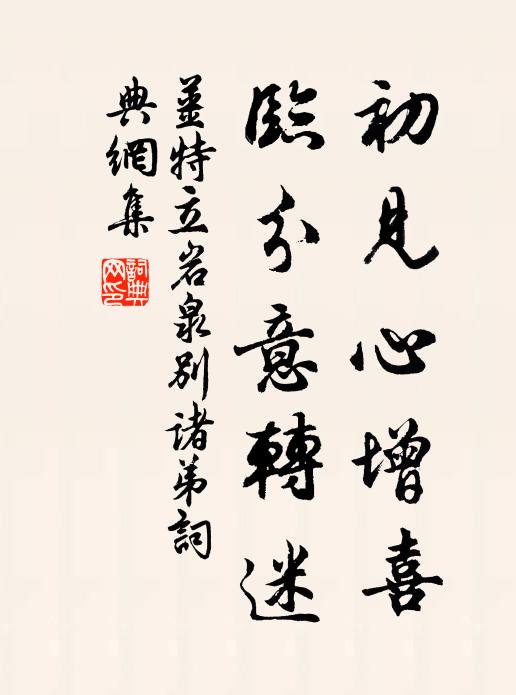 初見心增喜
臨分意轉迷
薑特立岩泉別諸弟詞
典網集
詞典
网印